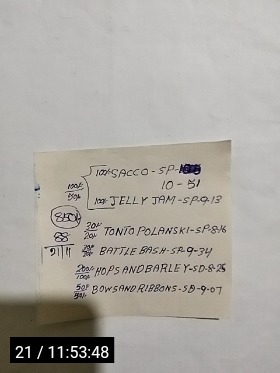 100/- SACCO - SP -
10 - 51
100/-
50/-
100/- JELLY JAM - SP-9-13
850/-
20/-
20/- TONTO POLANSKI - SP-8-16
88
BATTLE BASH - SP-9-34
21/11
200/-
100/- HOPS AND BARLEY - SD-8-25
50/-
50/- BOWS AND RIBBONS - SD-9-07
21 / 11:53:48